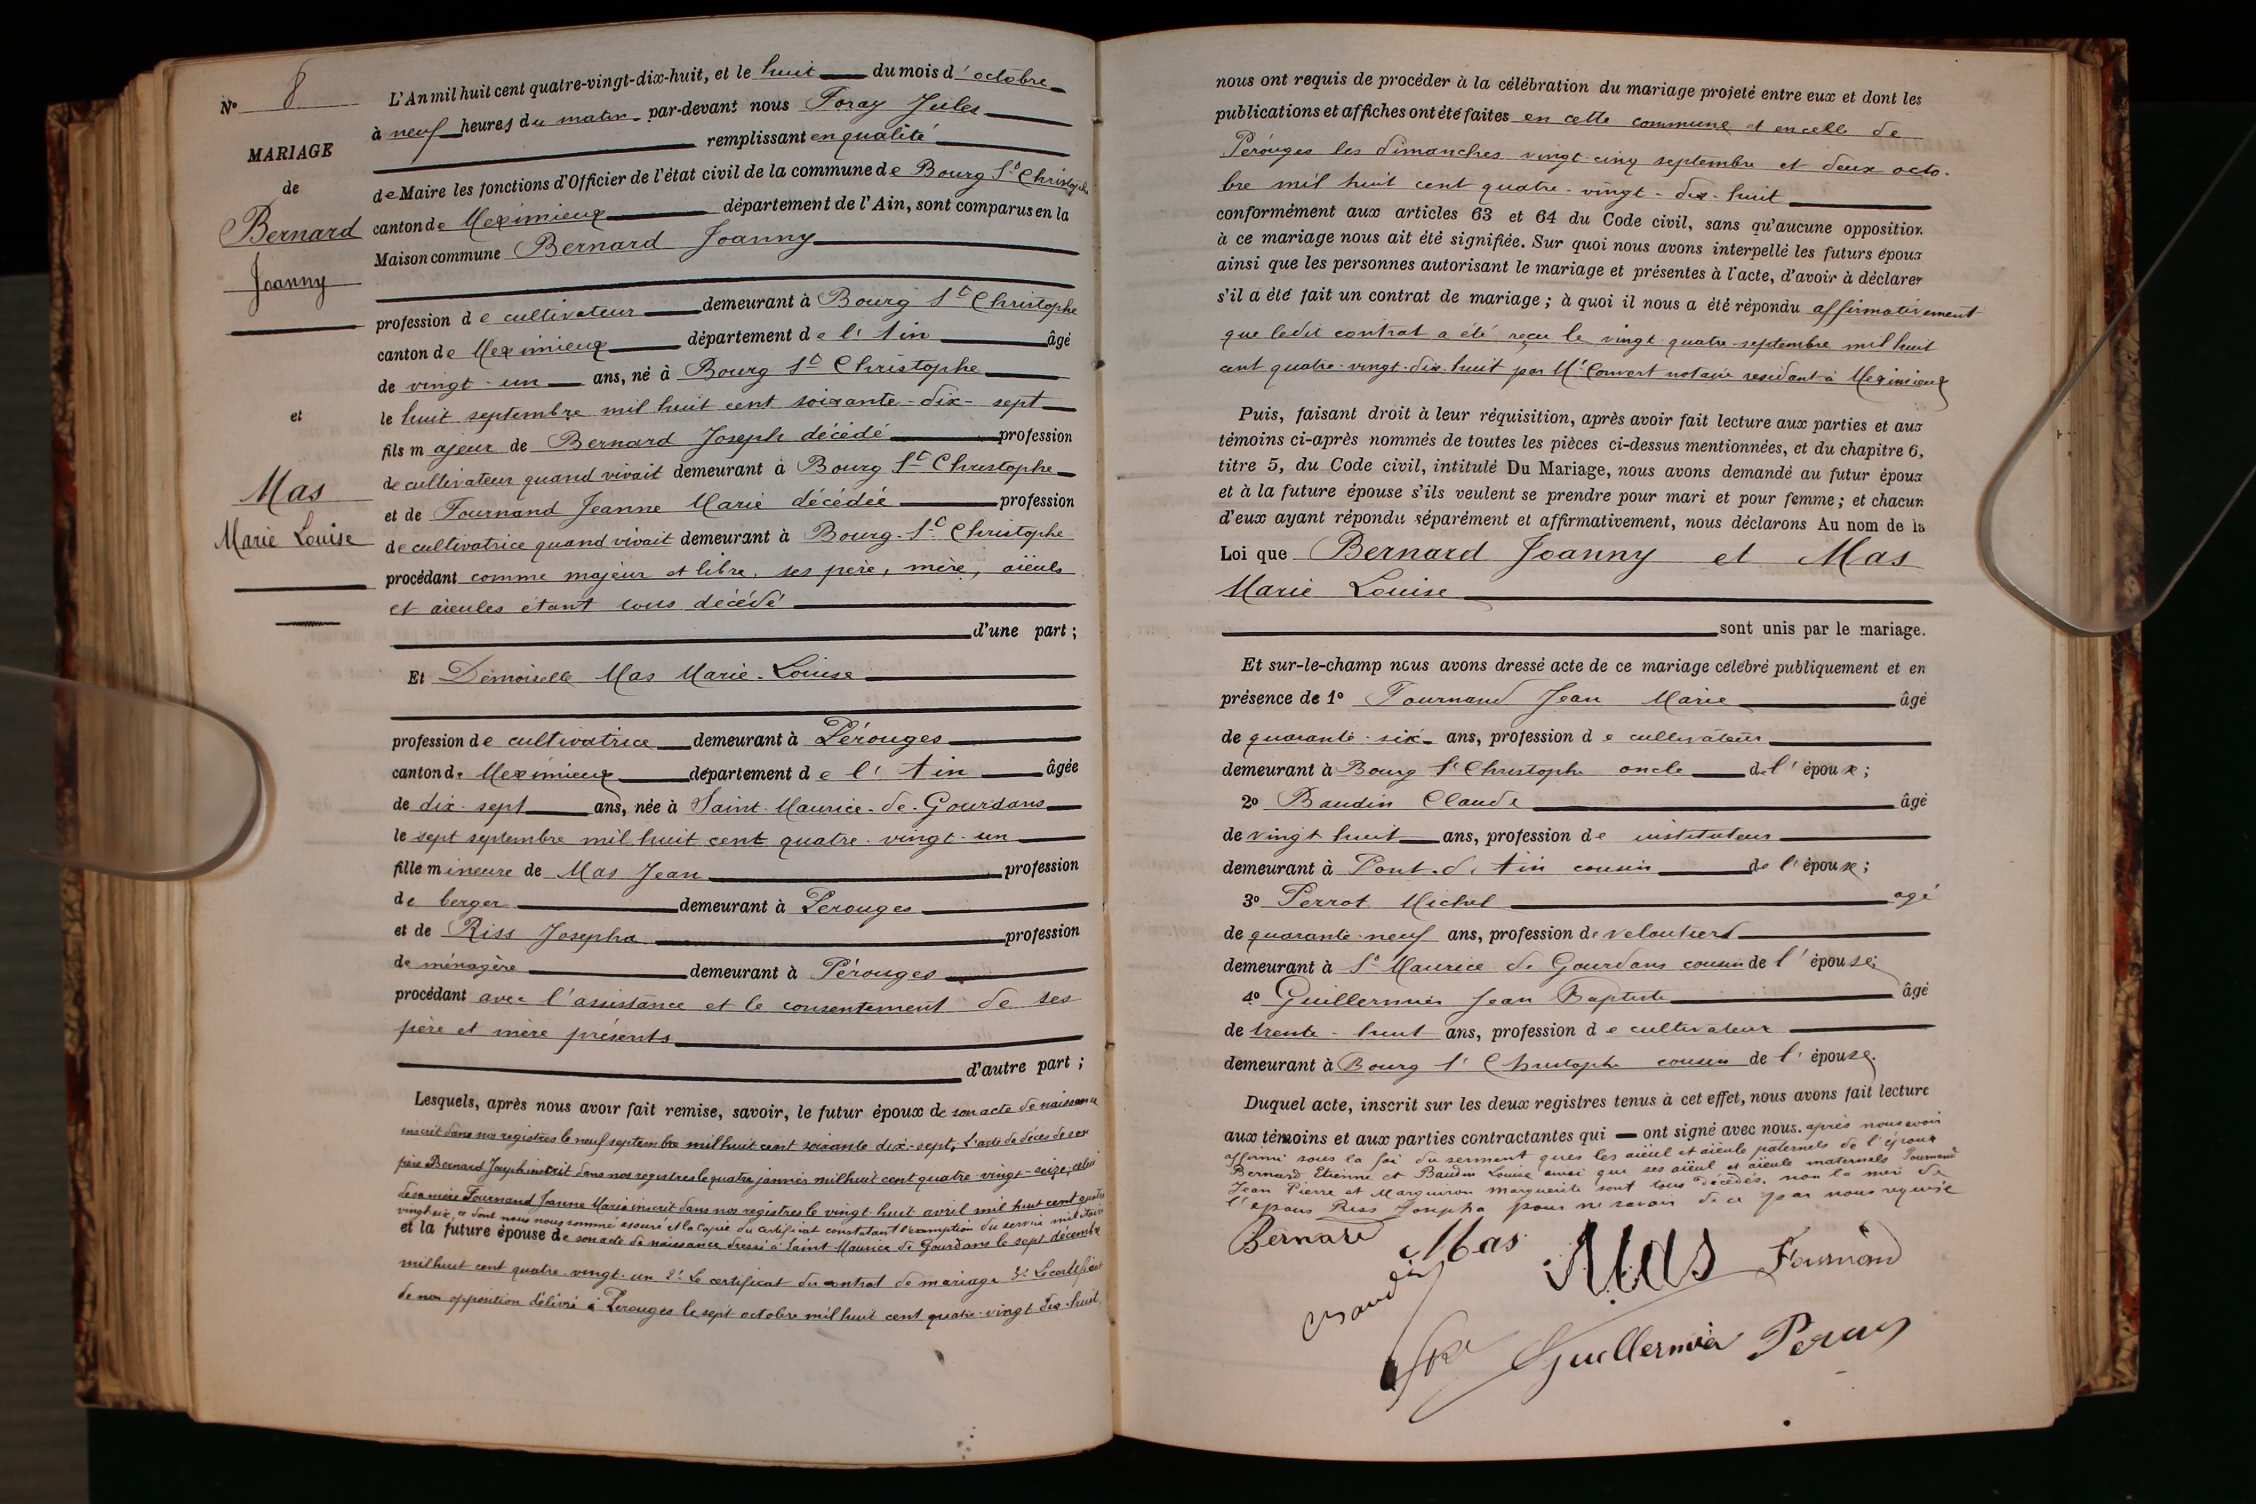 N° 8
MARIAGE
de
Bernard
Joanny
et
Mas
Marie Louise
L'An mil huit cent quatre-vingt-dix-huit, et le huit du mois d'octobre
à neuf heures du matin par-devant nous Foray Jules
remplissant en qualité
de Maire les fonctions d'Officier de l'état civil de la commune de Bourg St Christophe
canton de Meximieux département de l'Ain, sont comparus en la
Maison commune Bernard Joanny
profession de cultivateur demeurant à Bourg St Christophe
canton de Meximieux département de l'Ain âgé
de vingt-un ans, né à Bourg St Christophe
le huit septembre mil huit cent soixante-dix-sept
fils majeur de Bernard Joseph décédé profession
de cultivateur quand vivait demeurant à Bourg St Christophe
et de Fournand Jeanne Marie décédée profession
de cultivatrice quand vivait demeurant à Bourg-St Christophe
procédant comme majeur et libre, ses père, mère, aïeuls
et aïeules étant tous décédé
d'une part ;
Et Demoiselle Mas Marie-Louise
profession de cultivatrice demeurant à Pérouges
canton de Meximieux département de l'Ain âgée
de dix-sept ans, née à Saint-Maurice-de-Gourdans
le sept septembre mil huit cent quatre-vingt-un
fille mineure de Mas Jean profession
de berger demeurant à Perouges
et de Riss Josepha profession
de ménagère demeurant à Pérouges
procédant avec l'assistance et le consentement de ses
père et mère présents
d'autre part ;
Lesquels, après nous avoir fait remise, savoir, le futur époux de son acte de naissance
inscrit dans nos registres le neuf septembre mil huit cent soixante dix-sept, L'acte de décès de son
père Bernard Joseph inscrit dans nos registres le quatre janvier mil huit cent quatre-vingt-seize, celui
de sa mère Fournand Jeanne Marie inscrit dans nos registres le vingt-huit avril mil huit cent quatre
vingt-six, ce dont nous nous sommé assuré et la copie du certificat constatant l'exemption du service militaire
et la future épouse de son acte de naissance dressé à Saint-Maurice de Gourdans le sept décembre
mil huit cent quatre-vingt-un 2° Le certificat du contrat de mariage 3° Le certificat
de non opposition délivré à Perouges le sept octobre mil huit cent quatre-vingt dix-huit,
nous ont requis de procéder à la célébration du mariage projeté entre eux et dont les
publications et affiches ont été faites en cette commune et en celle de
Pérouges les dimanches vingt-cinq septembre et deux octo-
bre mil huit cent quatre-vingt-dix-huit
conformément aux articles 63 et 64 du Code civil, sans qu'aucune opposition
à ce mariage nous ait été signifiée. Sur quoi nous avons interpellé les futurs époux
ainsi que les personnes autorisant le mariage et présentes à l'acte, d'avoir à déclarer
s'il a été fait un contrat de mariage ; à quoi il nous a été répondu affirmativement
que ledit contrat a été reçu le vingt-quatre septembre mil huit
cent quatre-vingt-dix-huit par Me Convert notaire residant à Meximieux
Puis, faisant droit à leur réquisition, après avoir fait lecture aux parties et aux
témoins ci-après nommés de toutes les pièces ci-dessus mentionnées, et du chapitre 6,
titre 5, du Code civil, intitulé Du Mariage, nous avons demandé au futur époux
et à la future épouse s'ils veulent se prendre pour mari et pour femme ; et chacun
d'eux ayant répondu séparément et affirmativement, nous déclarons Au nom de la
Loi que Bernard Joanny et Mas
Marie Louise
sont unis par le mariage.
Et sur-le-champ nous avons dressé acte de ce mariage célébré publiquement et en
présence de 1° Fournand Jean Marie âgé
de quarante-six ans, profession de cultivateur
demeurant à Bourg St Christophe oncle de l'époux ;
2° Baudin Claude âgé
de vingt huit ans, profession de instituteur
demeurant à Pont-d'Ain cousin de l'épouse ;
3° Perrot Michel agé
de quarante-neuf ans, profession de veloutier
demeurant à St Maurice de Gourdans cousin de l'épouse ;
4° Guillermier Jean Baptiste âgé
de trente-huit ans, profession de cultivateur
demeurant à Bourg St Christophe cousin de l'épouse.
Duquel acte, inscrit sur les deux registres tenus à cet effet, nous avons fait lecture
aux témoins et aux parties contractantes qui ont signé avec nous. après nous avoir
affirmé sous la foi du serment que les aïeul et aïeule paternels de l'époux
Bernard Etienne et Baudin Louise ainsi que ses aïeul et aïeule maternels Fournand
Jean Pierre et Marguerite sont tous décédés. non la mère de
l'épouse Riss Josepha pour ne savoir de ce par nous requise
Bernard Mas Mas Fournand
Baudin
Guillermier Perrot